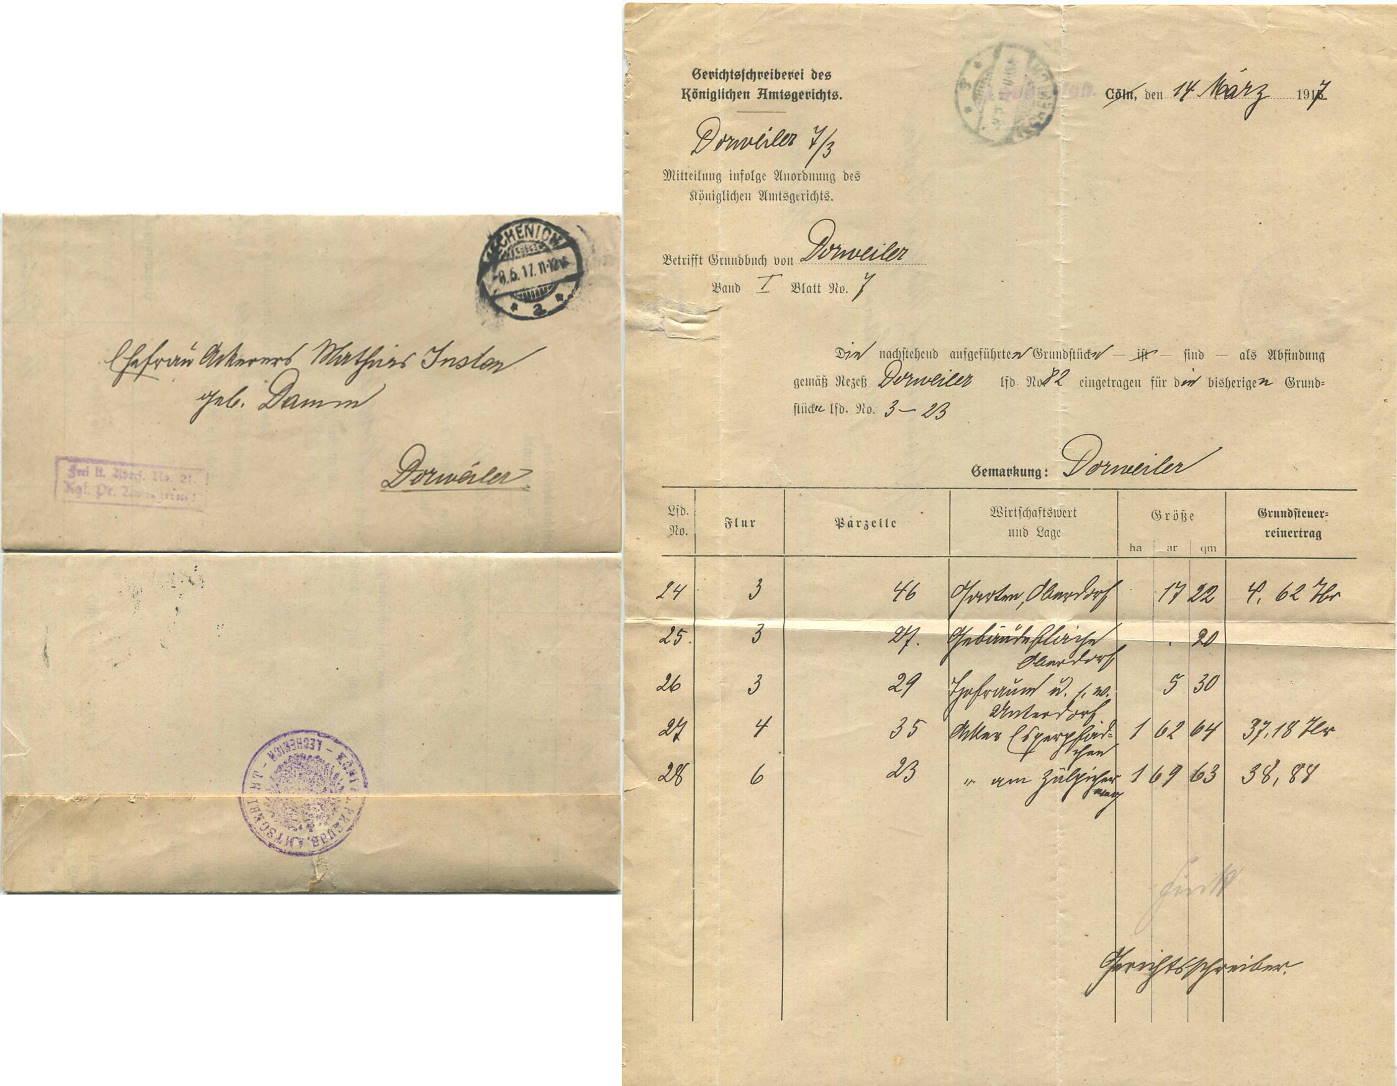 LECHENICH
8.6.17. 11-12V.
* a *
Ehefrau Ackerers Mathias Inden
geb. Damm
Dorweiler
Frei lt. Avers. No. 21.
Kgl. Pr. Amtsgericht
LECHENICH
Gerichtsschreiberei des
Königlichen Amtsgerichts.
Cöln, den 14 März 1917
Dorweiler 7/3
Mitteilung infolge Anordnung des
Königlichen Amtsgerichts.
Betrifft Grundbuch von Dorweiler
Band I Blatt No. 7
Die nachstehend aufgeführten Grundstücke — ist — sind — als Abfindung
gemäß Rezeß Dorweiler lfd No 82 eingetragen für die bisherigen Grund-
stücke lfd. No. 3 – 23
Gemarkung: Dorweiler
Lfd. No. Flur Parzelle Wirtschaftswert und Lage Größe Grundsteuer-reinertrag
ha ar qm
24 3 46 Garten, Oberdorf 17 22 4, 62 Thr
25. 3 27. Gebäudefläche . 20
Oberdorf
26 3 29 Hofraum u. s. w. 5 30
Unterdorf
27 4 35 Acker Esperpfäd- 1 62 64 37,18 Thr
chen
28 6 23 " am Zülpicher 1 69 63 38,88
weg
Gerichtsschreiber.